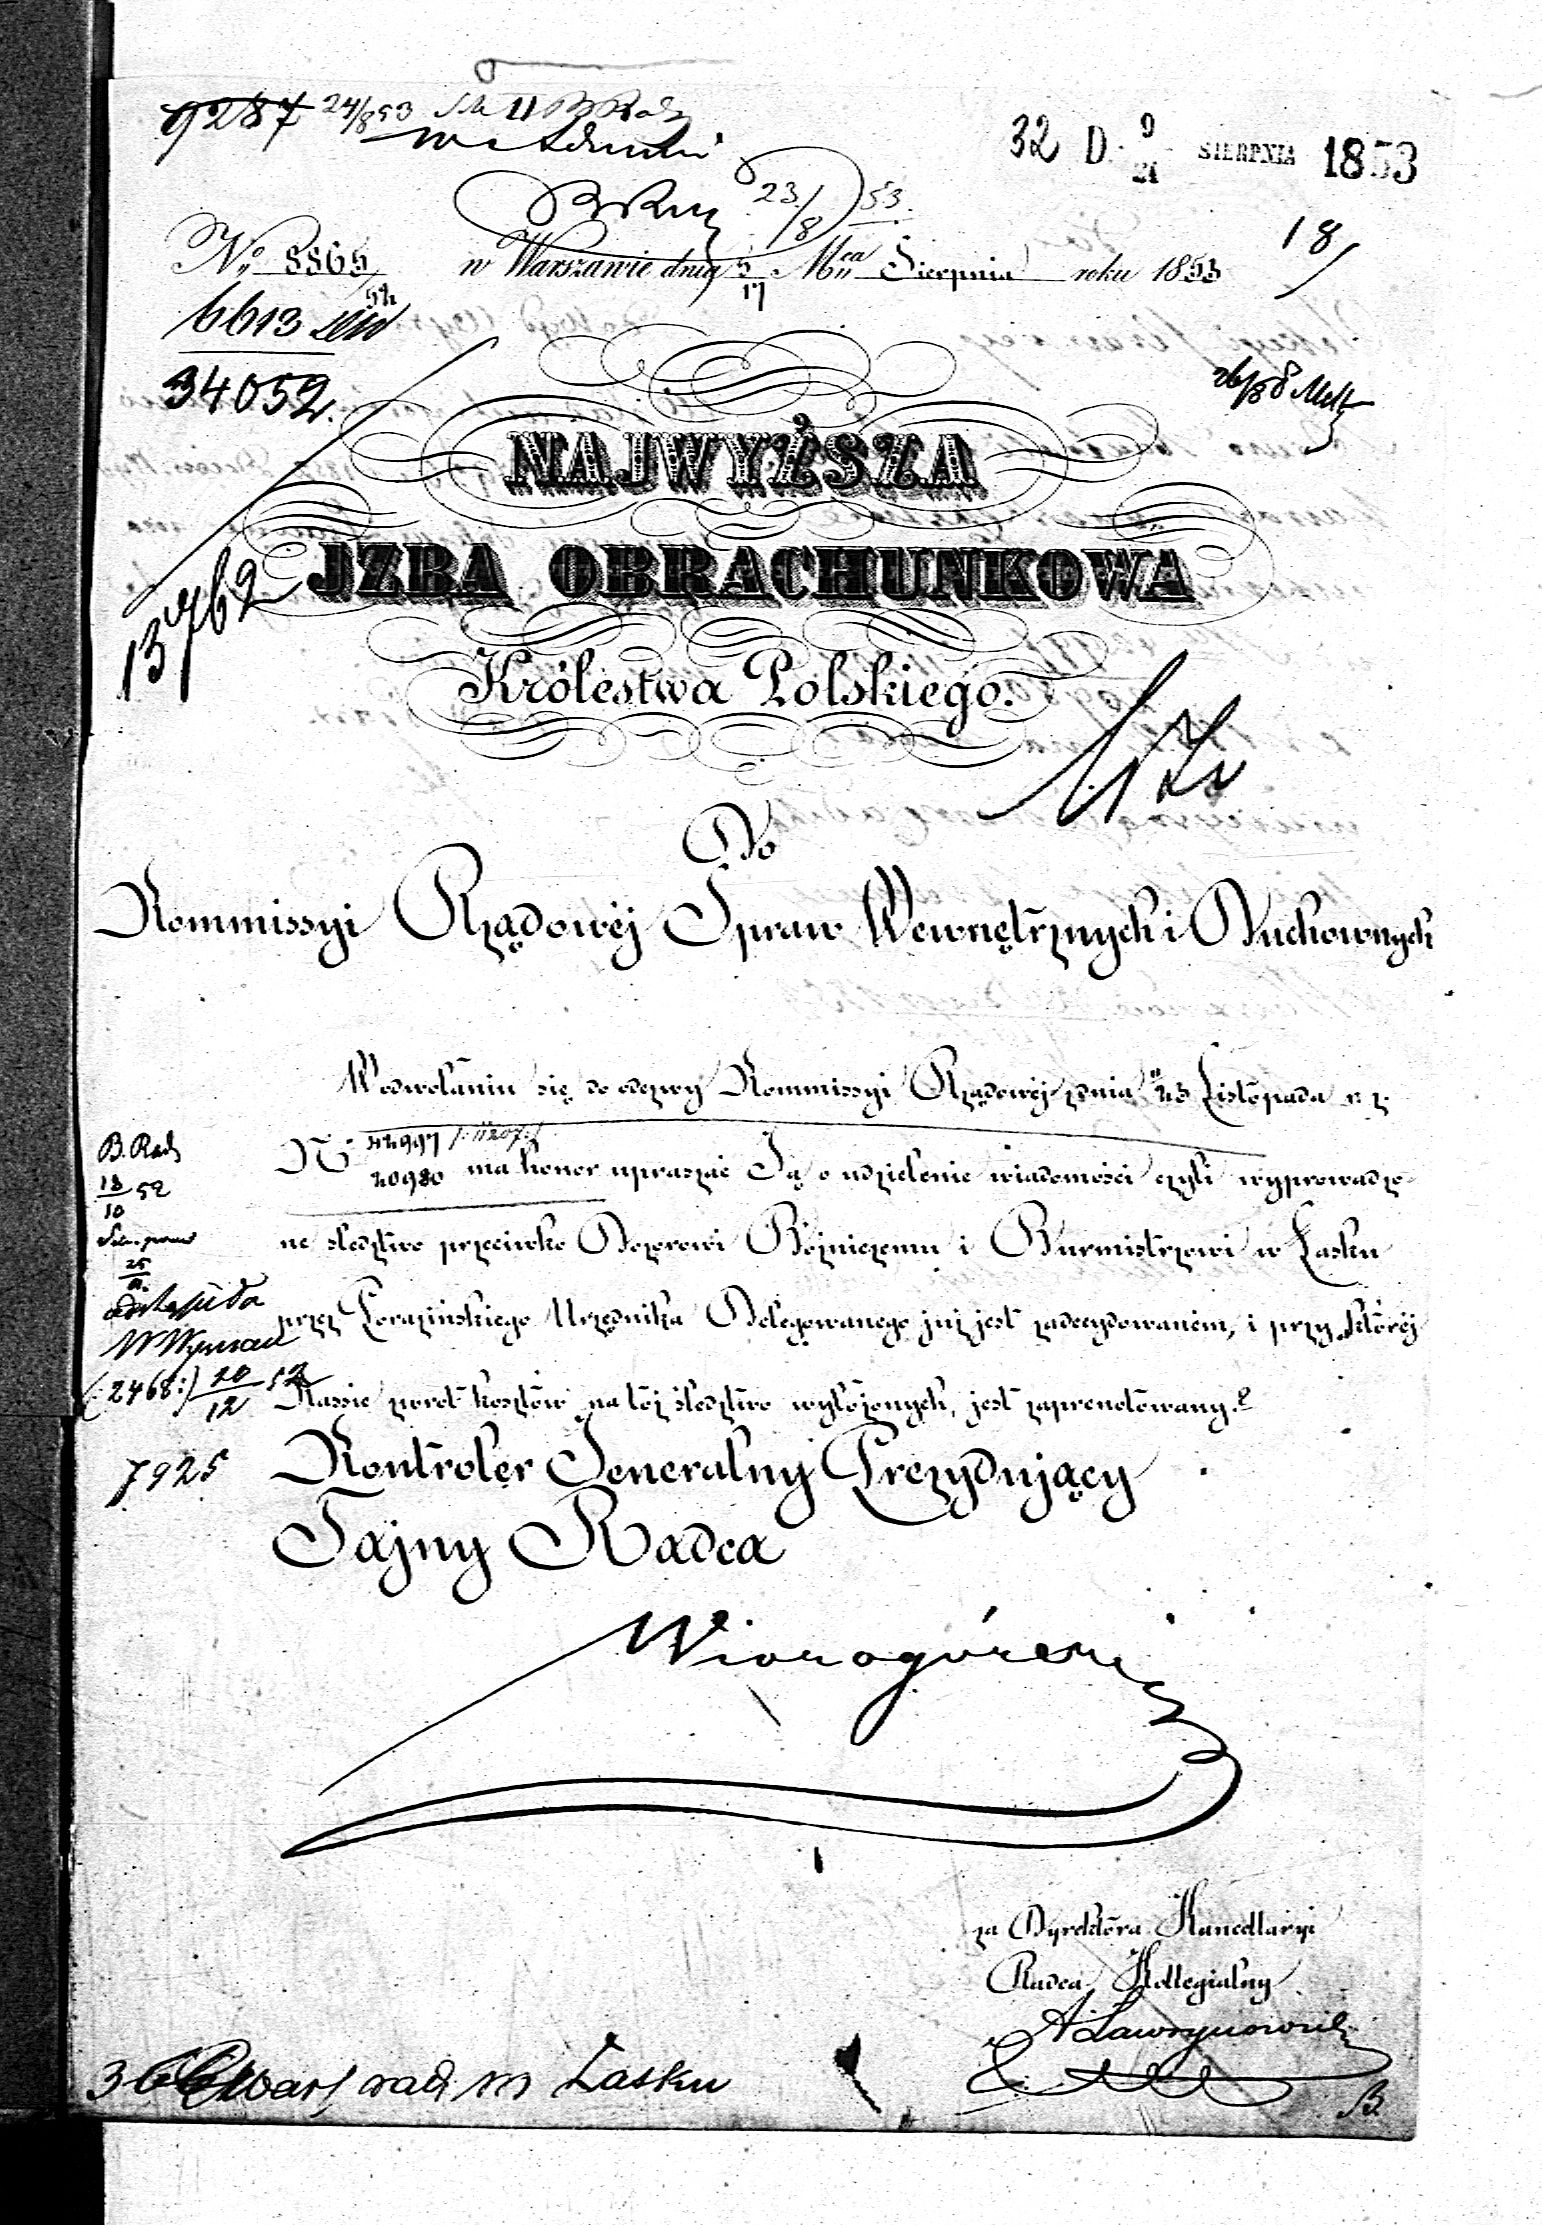 9287 24/8 53
32 D. 9/21 SIERPNIA 1853
23/8 53.
18
No. 8865
w Warszawie dnia 5/17 Mca Sierpnia roku 1853
6613
34052.
NAJWYŻSZA
JZBA OBRACHUNKOWA
13762
Królestwa Polskiego.
Do
Kommissyi Rządowéj Spraw Wewnętrznych i Duchownych
W odwołaniu się do odezwy Kommissyi Rządowéj z dnia 11/23 Listopada r. z.
No
20980 ma honor upraszać Ją o udzielenie wiadomości czyli wyprowadzo-
ne śledztwo przeciwko Dozorowi Bóżniczemu i Burmistrzowi w Łasku
przez Urzędnika Delegowanego już jest zadecydowanem, i przy któréj
Kassie zwrot kosztów na tóż śledztwo wyłożonych, jest zaprenotowany.?
B. Rad
18/10 52
25
(:2468:) 20/12 52
7925
Kontroler Jeneralny Prezydujący
Tajny Radca
za Dyrektora Kancellaryi
Radca Kollegialny
A Ławrynowicz
Łasku
B